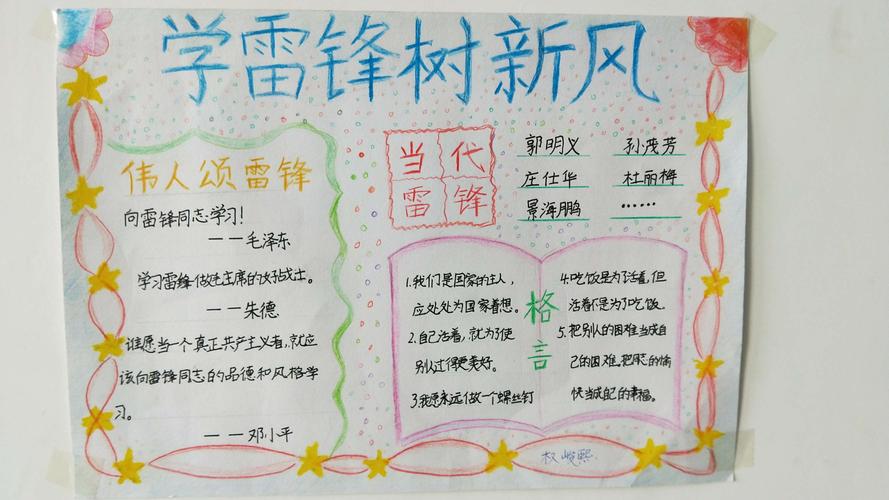 学雷锋树新风
伟人颂雷锋
向雷锋同志学习！
——毛泽东
学习雷锋做毛主席的好战士。
——朱德
谁愿当一个真正共产主义者，就应
该向雷锋同志的品德和风格学
习。
——邓小平
当代
雷锋
郭明义 孙茂芳
庄仕华 杜丽梅
景海鹏 ……
格言
1.我们是国家的主人，
应处处为国家着想。
2.自己活着，就为了使
别人过得更美好。
3.我愿永远做一个螺丝钉
4.吃饭是为了活着，但
活着不是为了吃饭。
5.把别人的困难当成自
己的困难，把同志的愉
快当成自己的幸福。
权峻熙